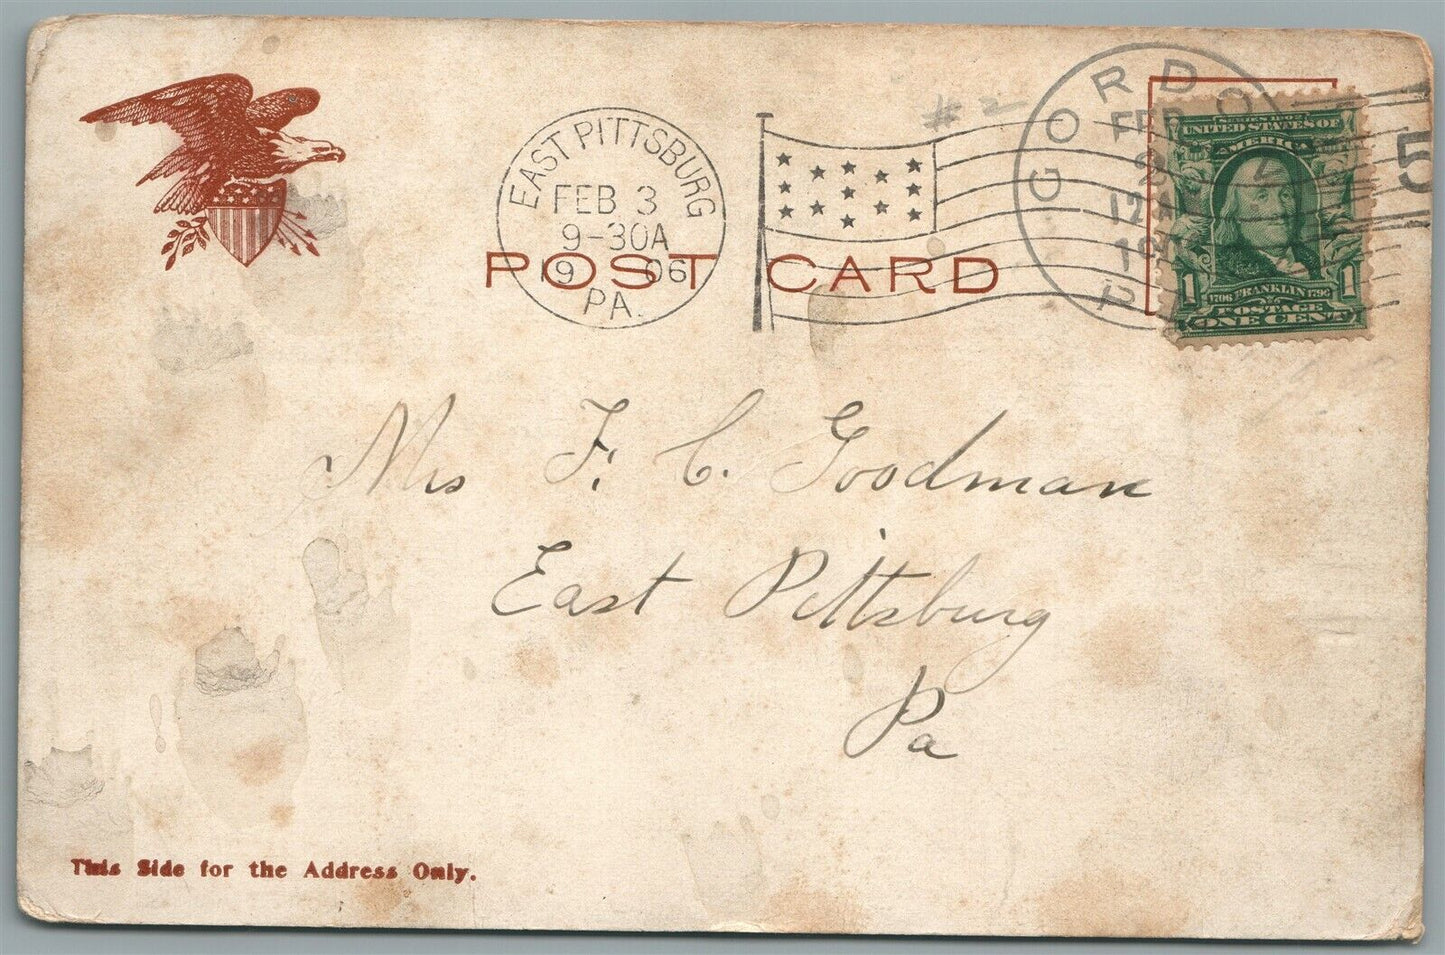 # 2
EAST PITTSBURG
FEB 3
9-30A
19 06
PA.
GORDO
FEB
2
12 A
190
P
5
SERIES 1902
UNITED STATES OF
AMERICA
1 1
1706 FRANKLIN 1790
POSTAGE
ONE CENT
POST CARD
Mrs F. C. Goodman
East Pittsburg
Pa
This Side for the Address Only.